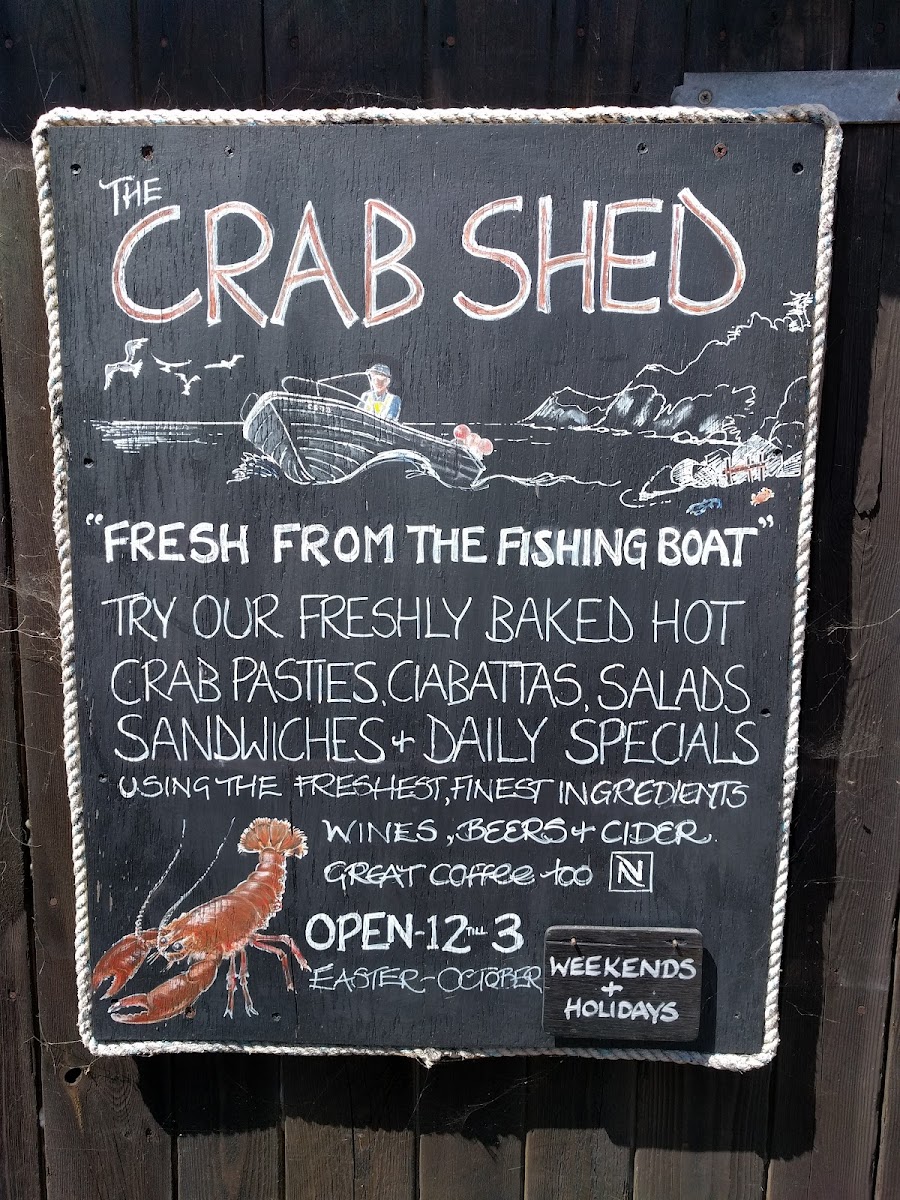 THE
CRAB SHED
"FRESH FROM THE FISHING BOAT"
TRY OUR FRESHLY BAKED HOT
CRAB PASTIES, CIABATTAS, SALADS
SANDWICHES + DAILY SPECIALS
USING THE FRESHEST, FINEST INGREDIENTS
WINES, BEERS + CIDER.
GREAT COFFEE too N
OPEN - 12 TILL 3
EASTER - OCTOBER
WEEKENDS
+
HOLIDAYS